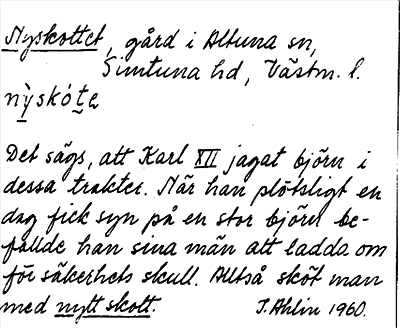 Nyskottet, gård i Altuna sn,
Simtuna hd, Västm. l.
nỳskó̠te̠
Det sägs, att Karl XII jagat björn i
dessa trakter. När han plötsligt en
dag fick syn på en stor björn be-
fallde han sina män att ladda om
för säkerhets skull. Alltså sköt man
med nytt skott. I. Ahlin 1960.